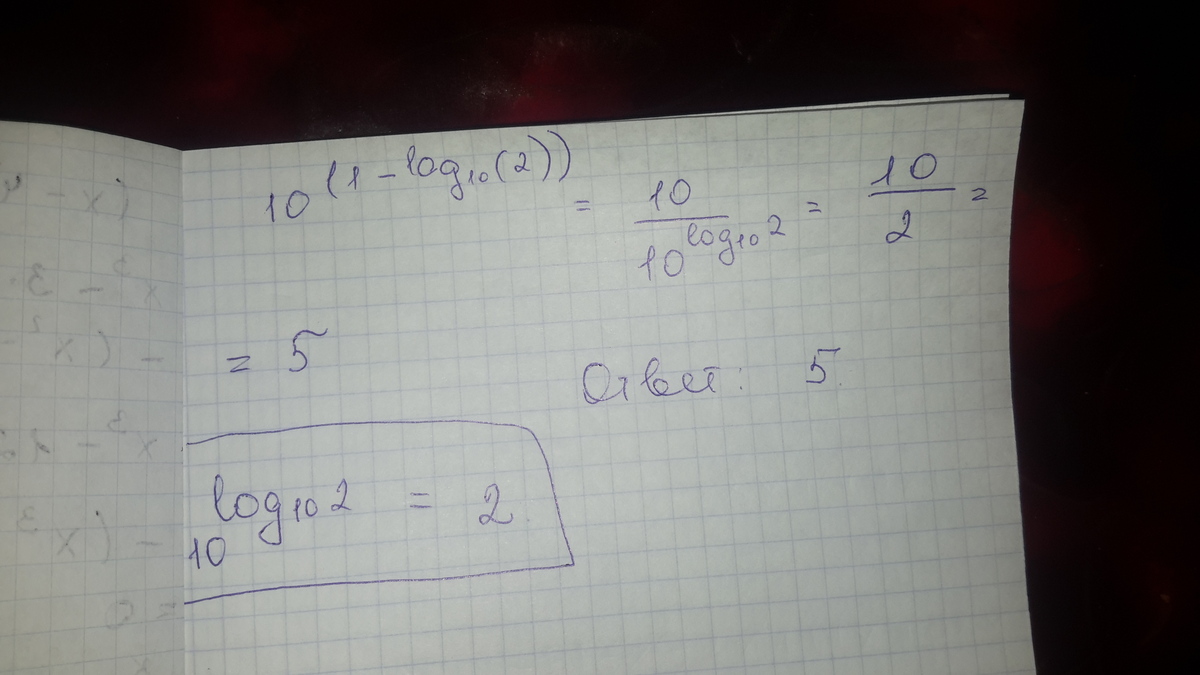 10^(1 - log₁₀(2)) = 10 / 10^(log₁₀2) = 10 / 2 =
= 5
Ответ: 5.
10^(log₁₀2) = 2.